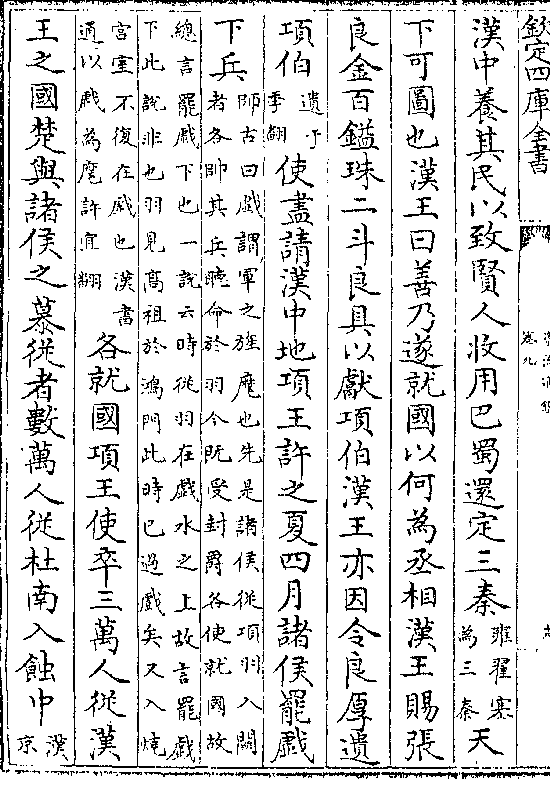 欽定四庫全書
卷九
漢中養其民以致賢人收用巴蜀還定三秦雍翟塞為三秦天
下可圖也漢王曰善乃遂就國以何為丞相漢王賜張
良金百鎰珠二斗良具以獻項伯漢王亦因令良厚遺
項伯遺于季翻使盡請漢中地項王許之夏四月諸侯罷戲
下兵師古曰戲謂軍之旌麾也先是諸侯從項羽入關者各帥其兵聽命於羽今既受封爵各使就國故
總言罷戲下也一說云時從羽在戲水之上故言罷戲下此說非也羽見高祖於鴻門此時已過戲矣又入燒
宮室不復在戲也漢書通以戲為麾許宜翻各就國項王使卒三萬人從漢
王之國楚與諸侯之慕從者數萬人從杜南入蝕中漢京